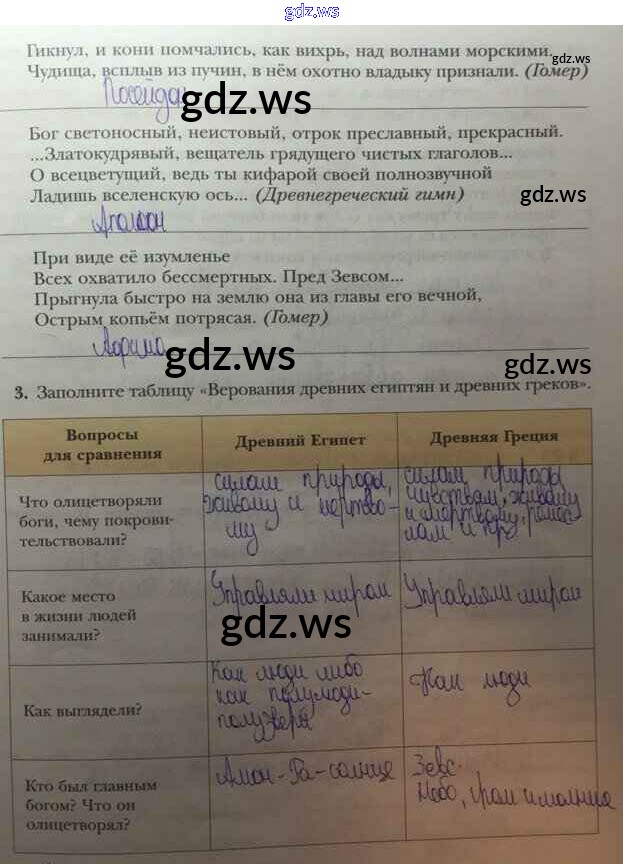 gdz.ws
Гикнул, и кони помчались, как вихрь, над волнами морскими.
gdz.ws
Чудища, всплыв из пучин, в нём охотно владыку признали. (Гомер)
Посейдон
gdz.ws
Бог светоносный, неистовый, отрок преславный, прекрасный.
...Златокудрявый, вещатель грядущего чистых глаголов...
О всецветущий, ведь ты кифарой своей полнозвучной
Ладишь вселенскую ось... (Древнегреческий гимн)
gdz.ws
Аполлон
При виде её изумленье
Всех охватило бессмертных. Пред Зевсом...
Прыгнула быстро на землю она из главы его вечной,
Острым копьём потрясая. (Гомер)
Афина
gdz.ws
gdz.ws
3. Заполните таблицу «Верования древних египтян и древних греков».
Вопросы
для сравнения
Древний Египет
Древняя Греция
Что олицетворяли
боги, чему покрови-
тельствовали?
силам природы,
живому и мертво-
му
силам природы
чувствам, живому
и мёртвому, ремёс
лам и пр
Какое место
в жизни людей
занимали?
Управляли миром
Управляли миром
gdz.ws
Как выглядели?
Как люди либо
как полулюди-
полузвери
Как люди
Кто был главным
богом? Что он
олицетворял?
Амон-Ра-солнце
Зевс.
Небо, гром и молния